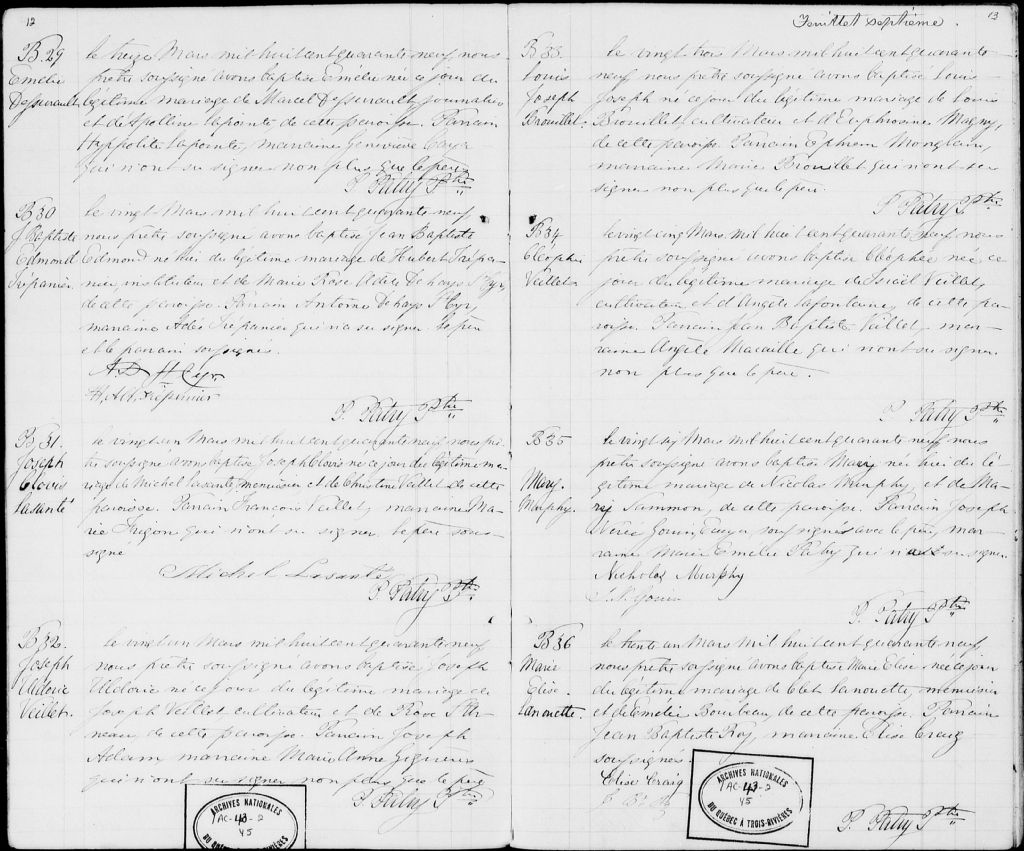 12
B 29
Emélie
Dessureault
le treize Mars mil huit cent quarante neuf, nous
prêtre soussigné avons baptisé Emélie née ce jour du
légitime mariage de Marcel Dessureault, journalier
et de Apolline Lapointe, de cette paroisse. Parrain
Hyppolite Lapointe, marraine Geneviève
qui n'ont su signer non plus que le père
P. Patry Ptre
B 30
J Baptiste
Edmond
Trépanier
le vingt Mars mil huit cent quarante neuf
nous prêtre soussigné avons baptisé Jean Baptiste
Edmond né hier du légitime mariage de Hubert Trépa-
nier instituteur et de Marie Rose Adèle Dehays St Cyr,
de cette paroisse. Parrain Antoine Dehays St Cyr,
marraine Adés Trépanier qui n'a su signer. le père
et le parrain soussignés.
AD St Cyr
H. Trépanier
P. Patry Ptre
B 31.
Joseph
Clovis
Lasanté
le vingt un Mars mil huit cent quarante neuf nous prê-
tre soussigné avons baptisé Joseph Clovis né ce jour du légitime ma-
riage de Michel Lasanté, menuisier et de Christine Veillet de cette
paroisse. Parrain François Veillet, marraine Ma-
rie Frigon qui n'ont su signer, le père sous-
signé
Michel Lasanté
P. Patry Ptre
B 32.
Joseph
Uldoric
Veillet.
le vingt un Mars mil huit cent quarante neuf
nous prêtre soussigné avons baptisé Joseph
Uldoric né ce jour du légitime mariage de
Joseph Veillet, cultivateur et de Rose St Ar-
neau, de cette paroisse. Parrain Joseph
Adam marraine Marie Anne Gignère
qui n'ont su signer non plus que le père
P. Patry Ptre
ARCHIVES NATIONALES
AC-43-2
45
DU QUÉBEC À TROIS-RIVIÈRES
Feuillet septième.
13
B 33.
Louis
Joseph
Brouillet.
le vingt trois Mars mil huit cent quarante
neuf nous prêtre soussigné avons baptisé Louis
Joseph né ce jour du légitime mariage de Louis
Brouillet, cultivateur et d'Euphrosine Magny,
de cette paroisse. Parrain Ephrem Mongrain,
marraine Marie Brouillet qui n'ont su
signer non plus que le père.
P. Patry Ptre
B 34
Cléophée
Veillet
le vingt cinq Mars mil huit cent quarante neuf nous
prêtre soussigné avons baptisé Cléophée née ce
jour du légitime mariage de Israël Veillet,
cultivateur et d'Angèle Lafontaine, de cette pa-
roisse. Parrain Jean Baptiste Veillet, mar-
raine Angèle Macaille qui n'ont su signer
non plus que le père.
P. Patry Ptre
B 35
Mary.
Murphy.
le vingt six Mars mil huit cent quarante neuf nous
prêtre soussigné avons baptisé Mary née hier du lé-
gitime mariage de Nicolas Murphy, et de Ma-
ry Sammon, de cette paroisse. Parrain Joseph
Nérée Gouin, soussignés avec le père, mar-
raine Marie Emélie Patry qui n'a su signer
Nicholas Murphy
J. N. Gouin
P. Patry Ptre
B 36
Marie
Elise.
Lanouette.
le trente un Mars mil huit cent quarante neuf,
nous prêtre soussigné avons baptisé Marie Elise née ce jour
du légitime mariage de Clet Lanouette, menuisier
et de Emélie Bouibeau, de cette paroisse. Parrain
Jean Baptiste Roy, marraine Elise Craig
soussignés.
Elise Craig
P. Patry Ptre
ARCHIVES NATIONALES
AC-43-2
45
DU QUÉBEC À TROIS-RIVIÈRES